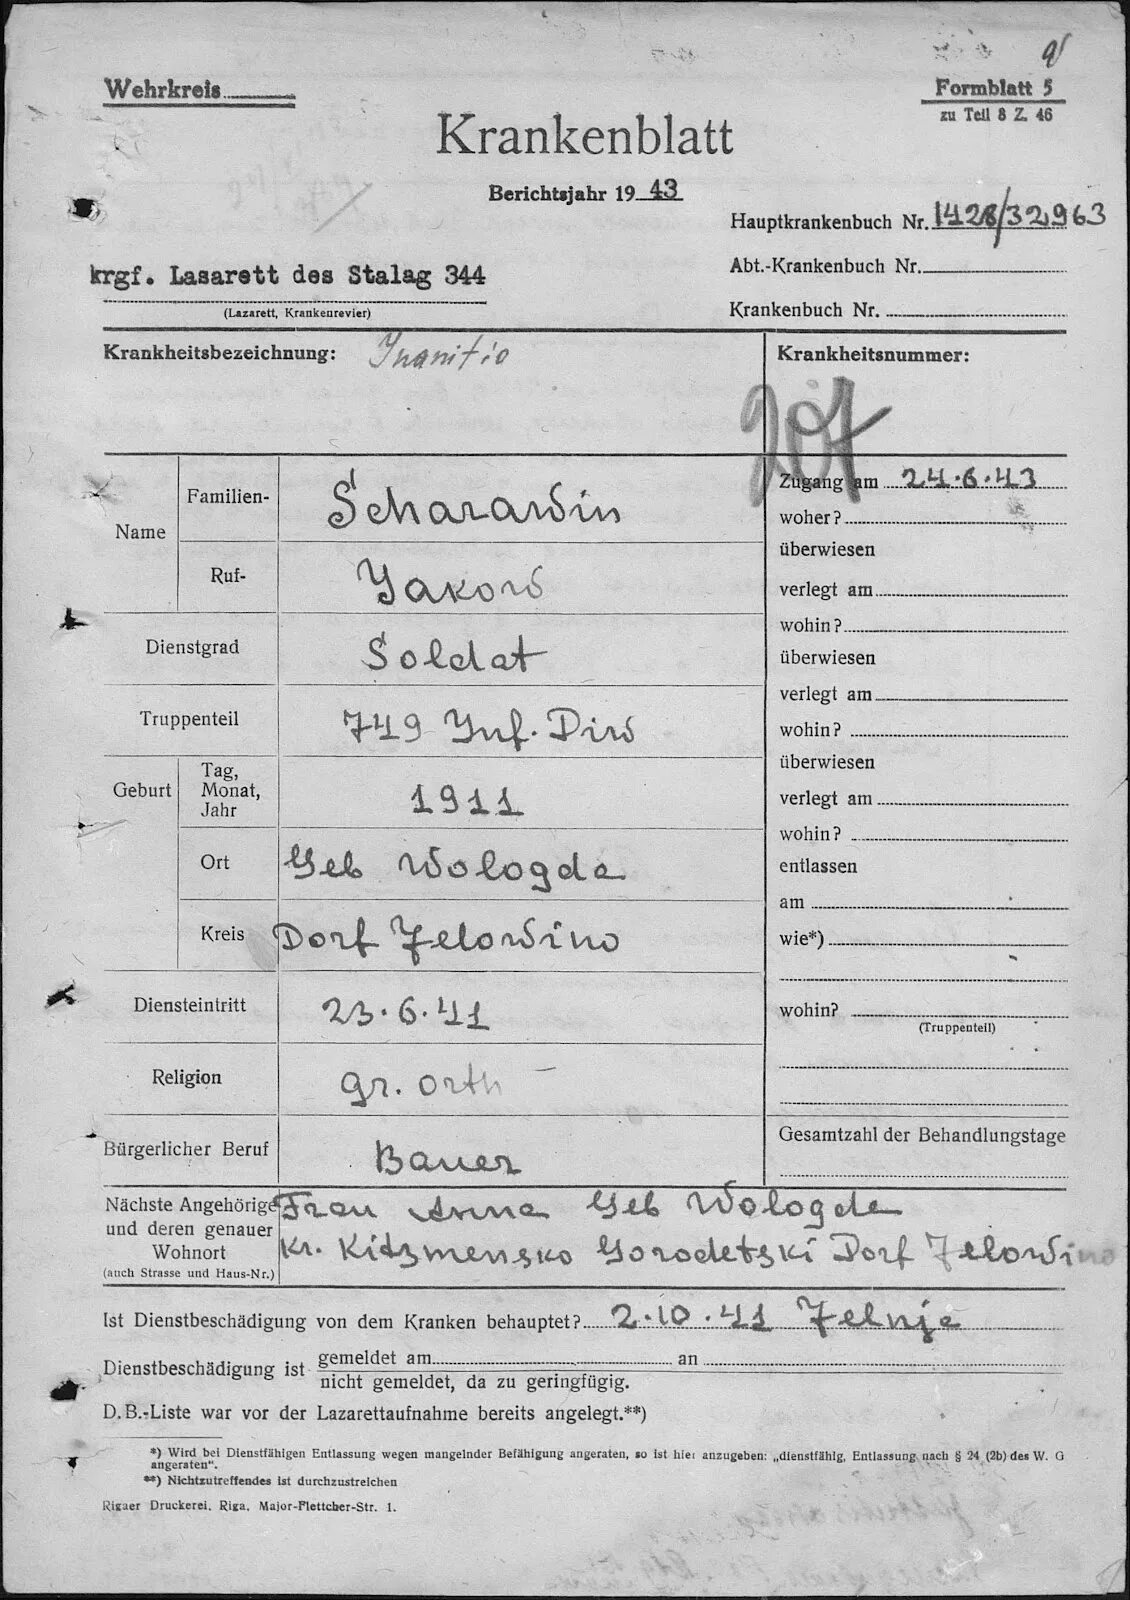 Wehrkreis
Formblatt 5
zu Teil 8 Z. 46
Krankenblatt
Berichtsjahr 19 43
Hauptkrankenbuch Nr. 1428/32963
Abt.-Krankenbuch Nr.
krgf. Lasarett des Stalag 344
(Lazarett, Krankenrevier)
Krankenbuch Nr.
Krankheitsbezeichnung: Inanitio
Krankheitsnummer:
Name
Familien- Scharawin
Ruf- Jakow
Dienstgrad Soldat
Truppenteil 749 Inf. Diw
Geburt
Tag, Monat, Jahr 1911
Ort Geb Wologda
Kreis Dorf Jelowino
Diensteintritt 23.6.41
Religion gr. orth
Bürgerlicher Beruf Bauer
Zugang am 24.6.43
woher?
überwiesen
verlegt am
wohin?
überwiesen
verlegt am
wohin?
überwiesen
verlegt am
wohin?
entlassen
am
wie*)
wohin?
(Truppenteil)
Gesamtzahl der Behandlungstage
Nächste Angehörige Frau Anna Geb Wologda
und deren genauer
Wohnort Kr. Kitzmensko Gorodetski Dorf Jelowino
(auch Strasse und Haus-Nr.)
Ist Dienstbeschädigung von dem Kranken behauptet? 2.10.41 Jelnje
Dienstbeschädigung ist gemeldet am an
nicht gemeldet, da zu geringfügig.
D.B.-Liste war vor der Lazarettaufnahme bereits angelegt.**)
*) Wird bei Dienstfähigen Entlassung wegen mangelnder Befähigung angeraten, so ist hier anzugeben: „dienstfähig, Entlassung nach § 24 (2b) des W. G
angeraten“.
**) Nichtzutreffendes ist durchzustreichen
Rigaer Druckerei, Riga, Major-Flettcher-Str. 1.